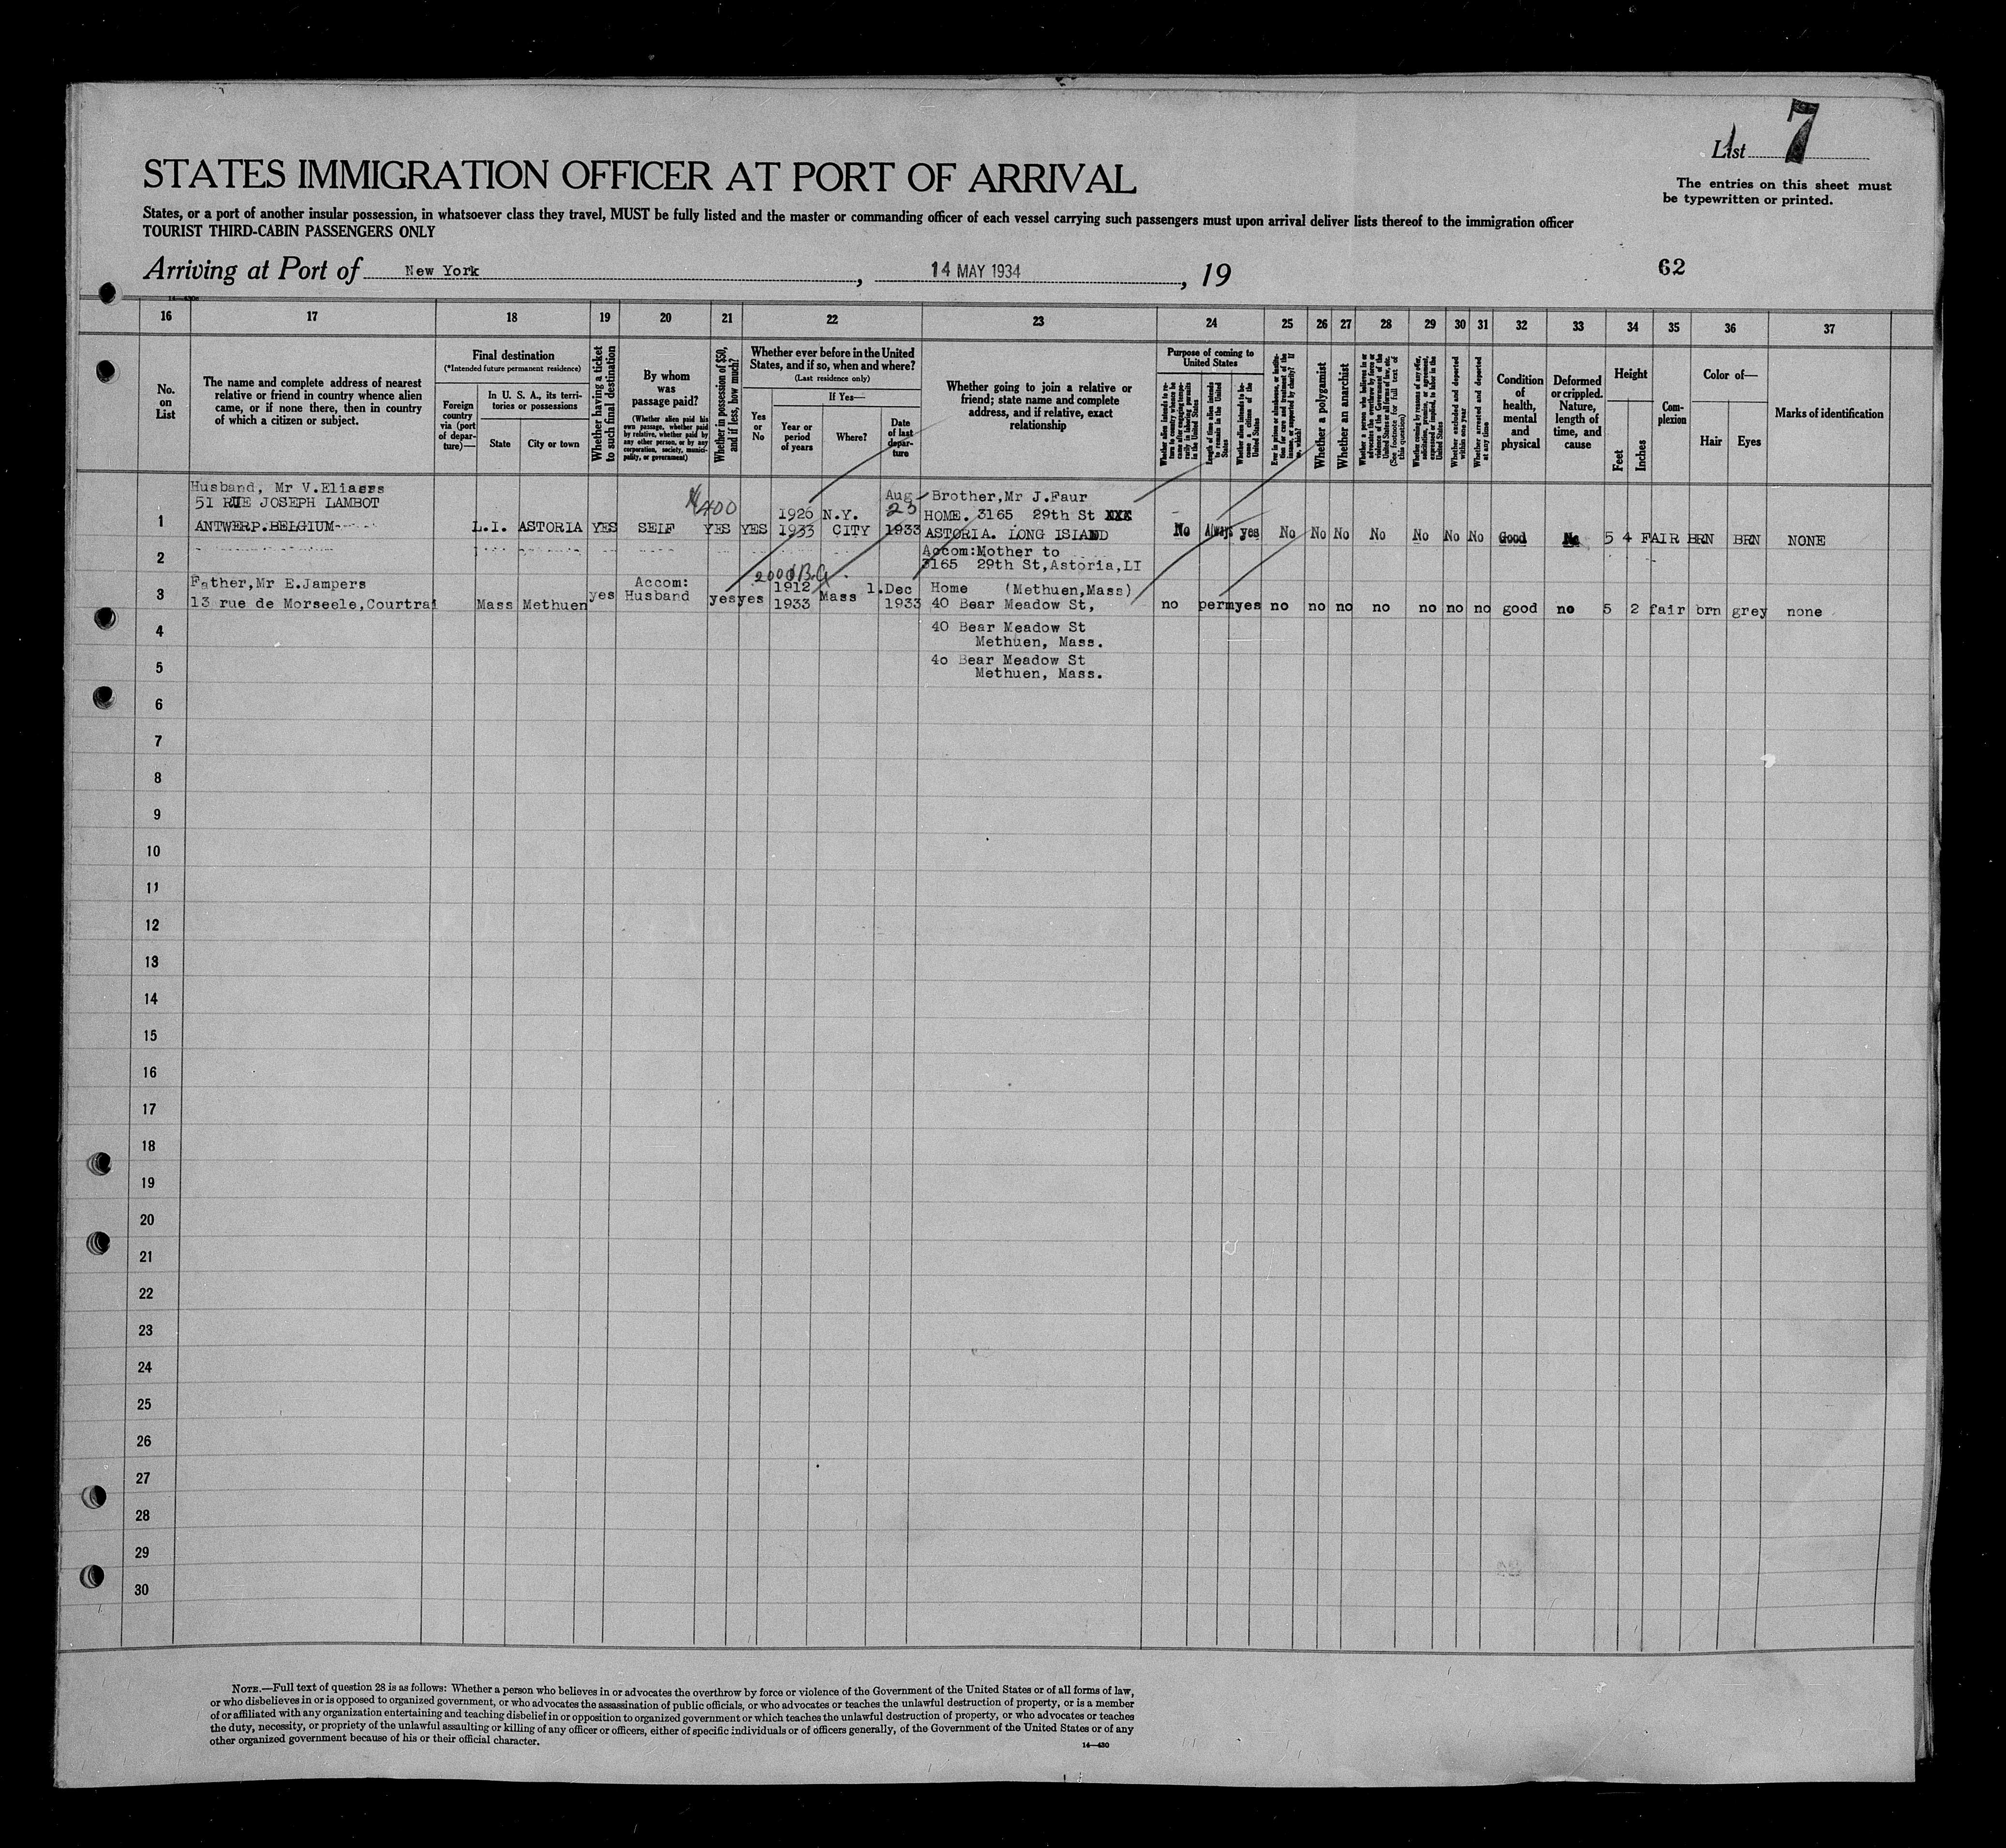 List 7
STATES IMMIGRATION OFFICER AT PORT OF ARRIVAL
The entries on this sheet must
be typewritten or printed.
States, or a port of another insular possession, in whatsoever class they travel, MUST be fully listed and the master or commanding officer of each vessel carrying such passengers must upon arrival deliver lists thereof to the immigration officer
TOURIST THIRD-CABIN PASSENGERS ONLY
Arriving at Port of New York, 14 MAY 1934, 19
62
16 17 18 19 20 21 22 23 24 25 26 27 28 29 30 31 32 33 34 35 36 37
No.
on
List
The name and complete address of nearest
relative or friend in country whence alien
came, or if none there, then in country
of which a citizen or subject.
Final destination
(*Intended future permanent residence)
Foreign
country
via (port
of depar-
ture)—
In U. S. A., its terri-
tories or possessions
State
City or town
Whether having a ticket
to such final destination
By whom
was
passage paid?
(Whether alien paid his
own passage, whether paid
by relative, whether paid by
any other person, or by any
corporation, society, munici-
pality, or government)
Whether in possession of $50,
and if less, how much?
Whether ever before in the United
States, and if so, when and where?
(Last residence only)
Yes
or
No
If Yes—
Year or
period
of years
Where?
Date
of last
depar-
ture
Whether going to join a relative or
friend; state name and complete
address, and if relative, exact
relationship
Purpose of coming to
United States
Whether alien intends to re-
turn to country whence he
came after engaging tempo-
rarily in laboring pursuits
in the United States
Length of time alien intends
to remain in the United
States
Whether alien intends to be-
come a citizen of the
United States
Ever in prison or almshouse, or institu-
tion for care and treatment of the
insane, or supported by charity? If
so, which?
Whether a polygamist
Whether an anarchist
Whether a person who believes in or
advocates the overthrow by force or
violence of the Government of the
United States or all forms of law, etc.
(See footnote for full text of
this question)
Whether coming by reason of any offer,
solicitation, promise, or agreement,
expressed or implied, to labor in the
United States
Whether excluded and deported
within one year
Whether arrested and deported
at any time
Condition
of
health,
mental
and
physical
Deformed
or crippled.
Nature,
length of
time, and
cause
Height
Feet
Inches
Com-
plexion
Color of—
Hair
Eyes
Marks of identification
Husband, Mr V.Eliaers
51 RUE JOSEPH LAMBOT
1 ANTWERP.BELGIUM L.I. ASTORIA YES SELF 400 YES YES 1926 1933 N.Y. CITY Aug 23 1933
Brother,Mr J.Faur
HOME. 3165 29th St
ASTORIA. LONG ISLAND
No Always yes No No No No No No No Good No 5 4 FAIR BRN BRN NONE
2
Accom:Mother to
3165 29th St,Astoria,LI
3 Father,Mr E.Jampers
13 rue de Morseele,Courtrai Mass Methuen yes Accom: Husband yes yes 1912 1933 Mass 1.Dec 1933
Home (Methuen,Mass)
40 Bear Meadow St,
no perm yes no no no no no no no good no 5 2 fair brn grey none
4 40 Bear Meadow St
Methuen, Mass.
5 4o Bear Meadow St
Methuen, Mass.
6
7
8
9
10
11
12
13
14
15
16
17
18
19
20
21
22
23
24
25
26
27
28
29
30
NOTE.—Full text of question 28 is as follows: Whether a person who believes in or advocates the overthrow by force or violence of the Government of the United States or of all forms of law,
or who disbelieves in or is opposed to organized government, or who advocates the assassination of public officials, or who advocates or teaches the unlawful destruction of property, or is a member
of or affiliated with any organization entertaining and teaching disbelief in or opposition to organized government or which teaches the unlawful destruction of property, or who advocates or teaches
the duty, necessity, or propriety of the unlawful assaulting or killing of any officer or officers, either of specific individuals or of officers generally, of the Government of the United States or of any
other organized government because of his or their official character.
14—430